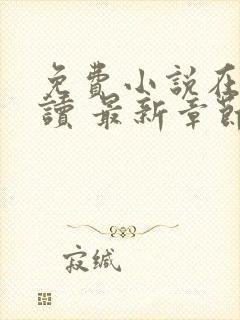 免費小說在
讀 最新章節
寂缄